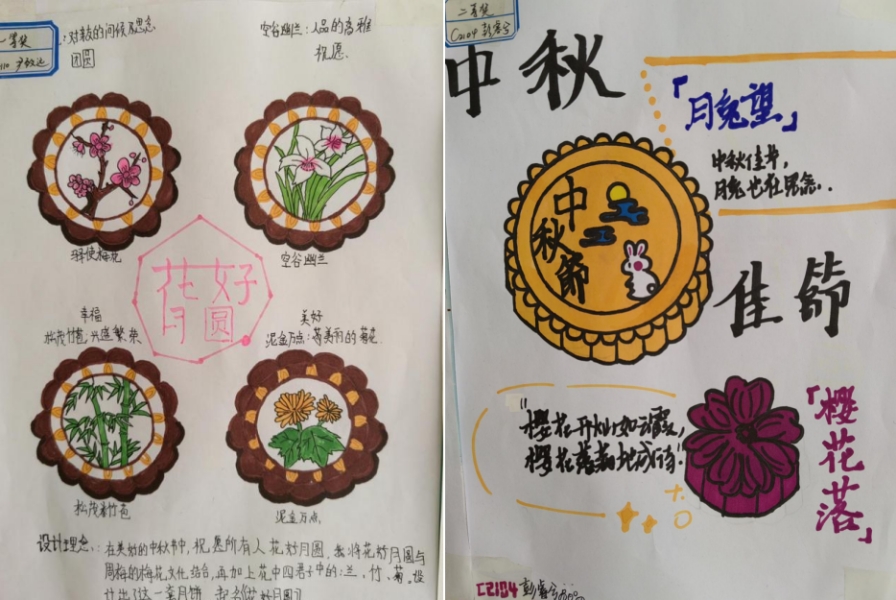 一等奖
:对教的问候及思念
团圆
空谷幽兰:人品的高雅
祝愿.
驿使梅花
空谷幽兰
花好
月圆
幸福
松茂竹苞 兴盛繁荣
美好
泥金万点:
美丽的菊花.
松茂竹苞
泥金万点
设计理念:在美好的中秋节中,祝愿所有人花好月圆,我将花好月圆与
周梅的梅花文化结合,再加上花中四君子中的:兰、竹、菊。设
计出了这一套月饼
二等奖
C2104
中秋
「月兔望」
中秋佳节,
月兔也在思念..
中秋節
佳節
"樱花开
如云霞,
樱花落
「樱花落」
C2104